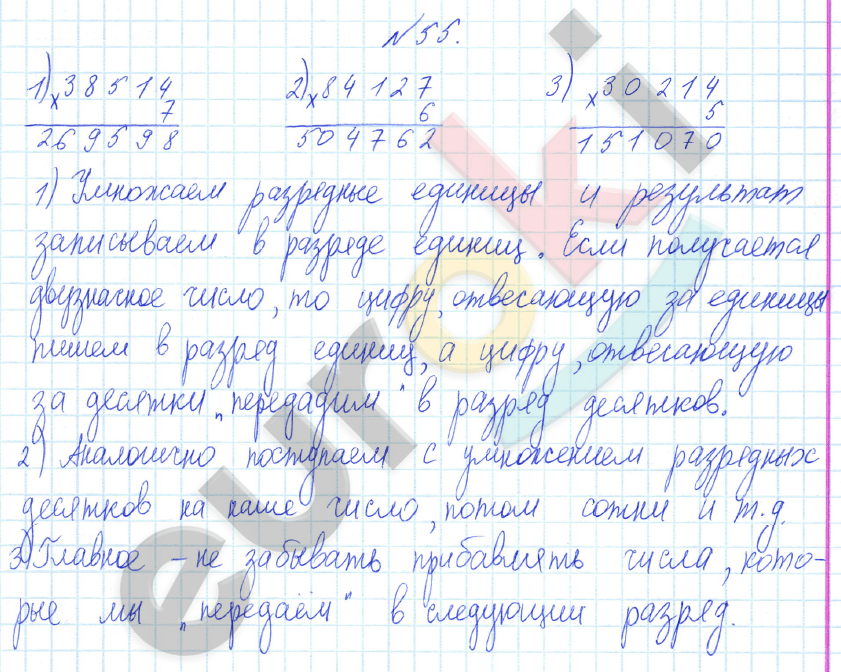 №55.
1) × 38514 2) × 84127 3) × 30214
7 6 5
269598 504762 151070
1) Умножаем разрядные единицы и результат
записываем в разряде единиц. Если получается
двузначное число, то цифру, отвечающую за единицы
пишем в разряд единиц, а цифру, отвечающую
за десятки „передадим" в разряд десятков.
2) Аналогично поступаем с умножением разрядных
десятков на наше число, потом сотни и т.д.
3) Главное – не забывать прибавлять числа, кото-
рые мы „передаём" в следующий разряд.
euroki